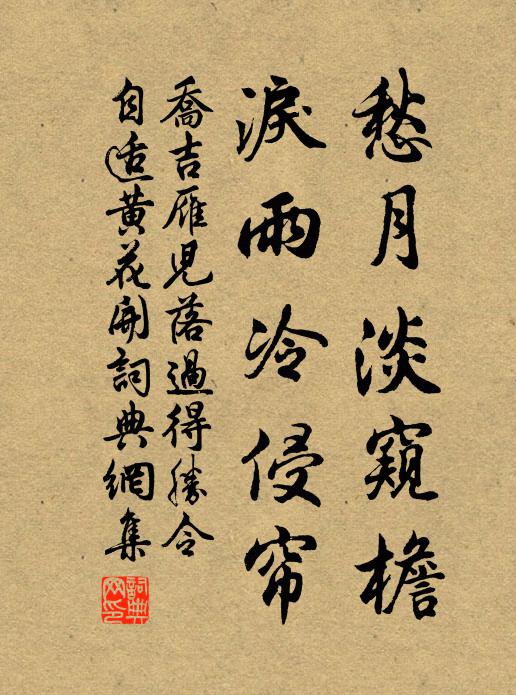 愁月淡窺檐
淚雨冷侵帘
喬吉雁兒落過得勝令
自适黄花開詞典網集
詞典網印